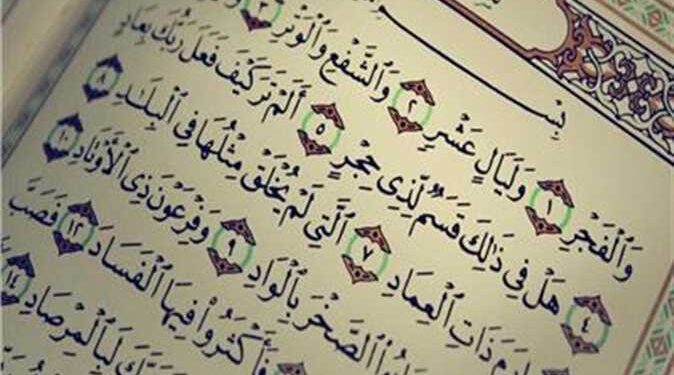 وَٱلْفَجْرِ ١ وَلَيَالٍ عَشْرٍ ٢ وَٱلشَّفْعِ وَٱلْوَتْرِ ٣
٤ هَلْ فِى ذَٰلِكَ قَسَمٌ لِّذِى حِجْرٍ ٥ أَلَمْ تَرَ كَيْفَ فَعَلَ رَبُّكَ بِعَادٍ
ذَاتِ ٱلْعِمَادِ ٧ ٱلَّتِى لَمْ يُخْلَقْ مِثْلُهَا فِى ٱلْبِلَٰدِ ٨
ٱلصَّخْرَ بِٱلْوَادِ ٩ وَفِرْعَوْنَ ذِى ٱلْأَوْتَادِ ١٠
فَأَكْثَرُوا۟ فِيهَا ٱلْفَسَادَ ١٢ فَصَبَّ
رَبَّكَ لَبِٱلْمِرْصَادِ ١٤